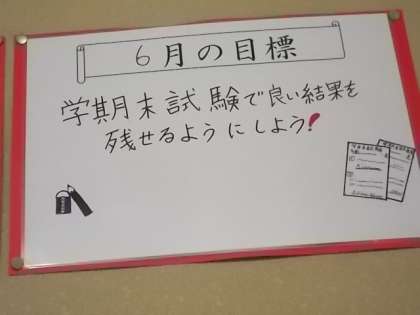 6月の目標
学期末試験で良い結果を
残せるようにしよう!